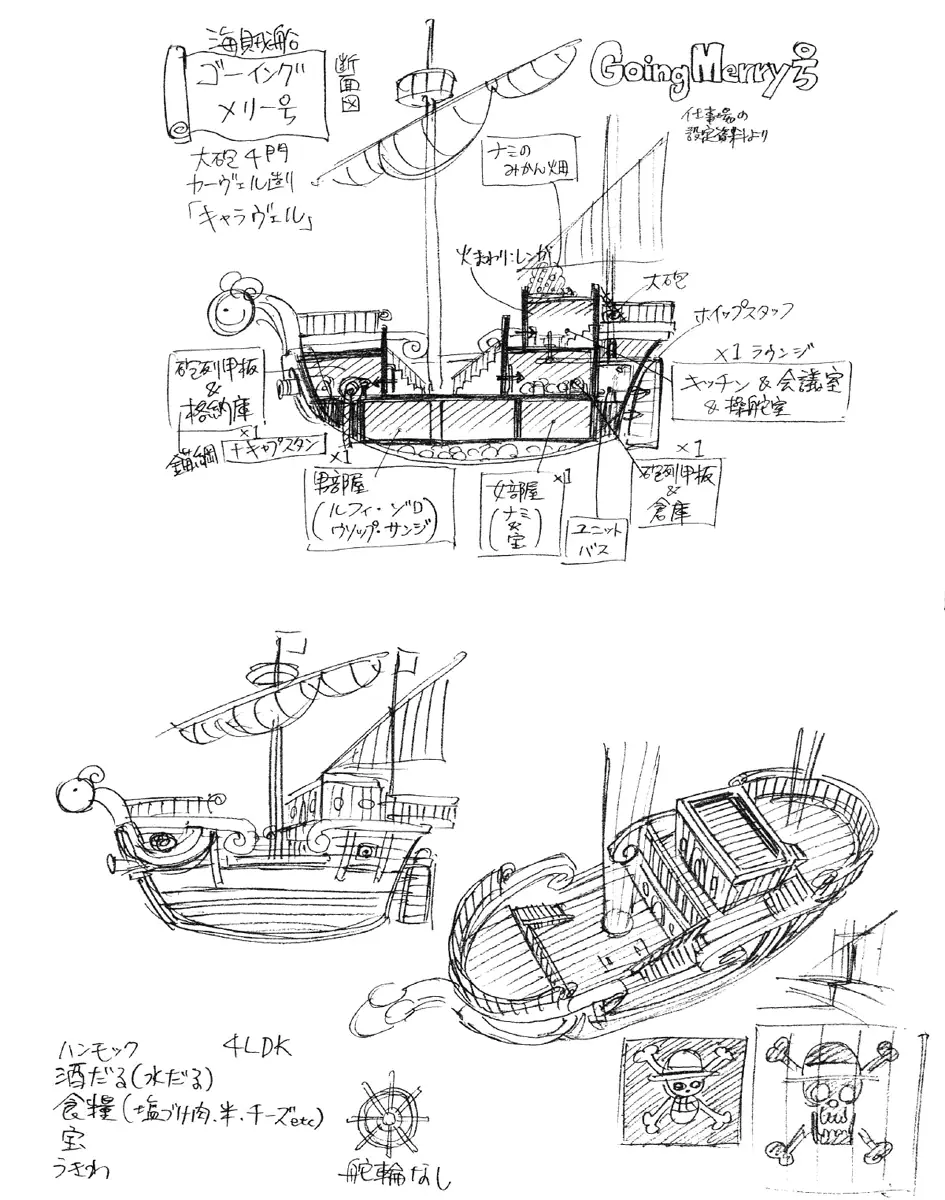 海賊船
ゴーイング
メリー号
断面図
GoingMerry号
仕事場の
設定資料より
大砲4門
カーヴェル造り
「キャラヴェル」
ナミの
みかん畑
火まわりにレンガ
大砲
ホイップスタッフ
×1 ラウンジ
キッチン&会議室
&操舵室
砲列甲板
&
格納庫
×1
錨綱
+キャプスタン
×1
男部屋
(ルフィ・ゾロ
ウソップ・サンジ)
×1
女部屋
(ナミ
&
宝)
ユニット
バス
×1
砲列甲板
&
倉庫
ハンモック
4LDK
酒だる(水だる)
食糧(塩づけ肉、米、チーズetc)
宝
うきわ
舵輪なし